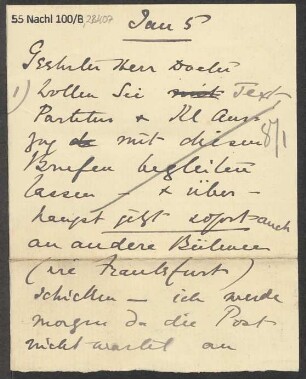 55 Nachl 100/B
Jan 5
Geehrter Herr Doctor
1) Wollen Sie mit Text
Partitur & Kl Aus-
zug mit diesen
8/1
Briefen begleiten
lassen – & über-
haupt jetzt sofort auch
an andere Bühnen
(wie Frankfurt)
schicken – ich werde
morgen da die Post
nicht wartet an